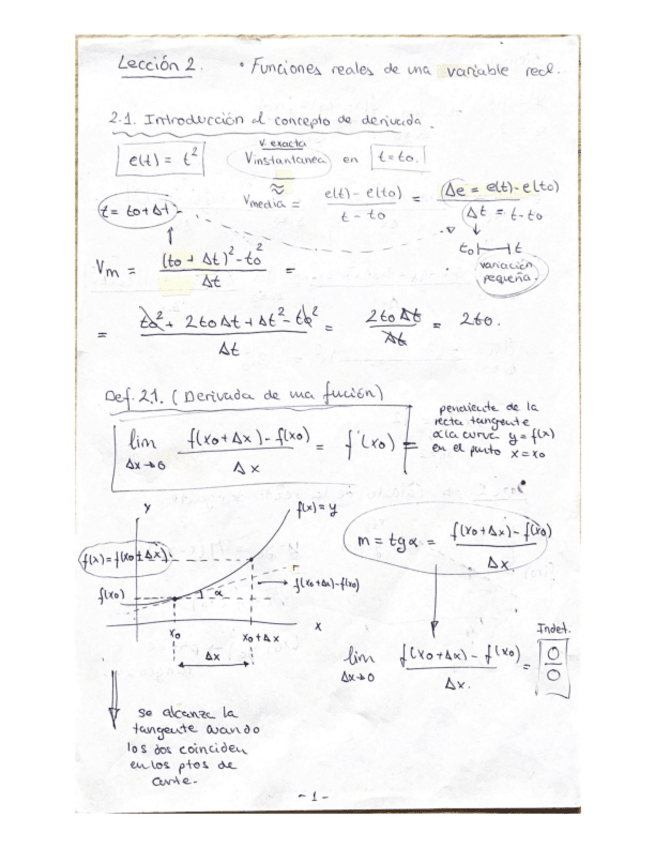 Lección 2. • Funciones reales de una variable real.
2.1. Introducción al concepto de derivada.
e(t) = t² V. exacta Vinstantanea en t = to.
≈
Vmedia = e(t) - e(to) / t - to = Δe = e(t) - e(to) / Δt = t - to
t = to + Δt
to t
variación
pequeña.
Vm = (to + Δt)² - to² / Δt =
= to² + 2toΔt + Δt² - to² / Δt = 2toΔt / Δt = 2to.
Def. 2.1. (Derivada de una fución)
lim Δx→0 f(xo + Δx) - f(xo) / Δx = f'(xo) =
pendiente de la
recta tangente
a la curva y = f(x)
en el punto x = xo
y
f(x) = y
f(x) = f(xo + Δx)
f(xo)
α
f(xo + Δx) - f(xo)
x
xo xo + Δx
Δx
m = tg α = f(xo + Δx) - f(xo) / Δx.
Indet.
lim Δx→0 f(xo + Δx) - f(xo) / Δx. = 0 / 0
se alcanza la
tangente cuando
los dos coinciden
en los ptos de
corte.
- 1 -